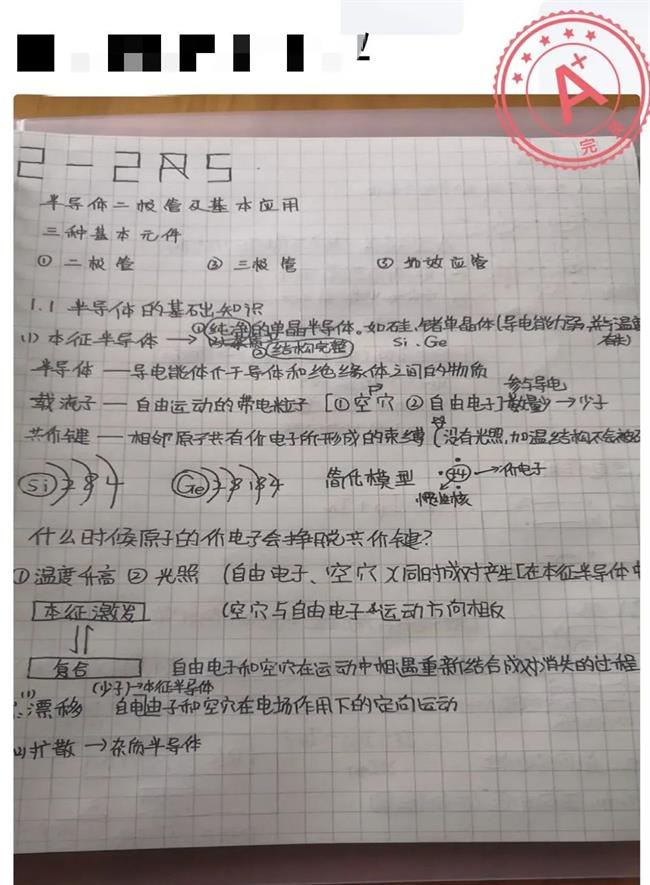 A+
完
2-2AS
半导体二极管及基本应用
三种基本元件
① 二极管 ② 三极管 ③ 场效应管
1.1 半导体的基础知识
(1) 本征半导体 → ①纯净的单晶半导体。如硅、锗单晶体(导电能力弱,并与温度有关)
②结构完整 Si、Ge
半导体 — 导电能体介于导体和绝缘体之间的物质
参与导电
载流子 — 自由运动的带电粒子 [①空穴 ②自由电子] 数量少 → 少子
共价键 — 相邻原子共有价电子所形成的束缚 (没有光照,加温结构不会被
Si 2 8 4 Ge 2 8 18 4 简化模型 +4 → 价电子
惯性核
什么时候原子的价电子会挣脱共价键?
① 温度升高 ② 光照 (自由电子、空穴)(同时成对产生[在本征半导体中
本征激发 (空穴与自由电子运动方向相反
复合 自由电子和空穴在运动中相遇重新结合成对消失的过程
(少子)→本征半导体
(1)漂移 自由电子和空穴在电场作用下的定向运动
(2)扩散 → 杂质半导体